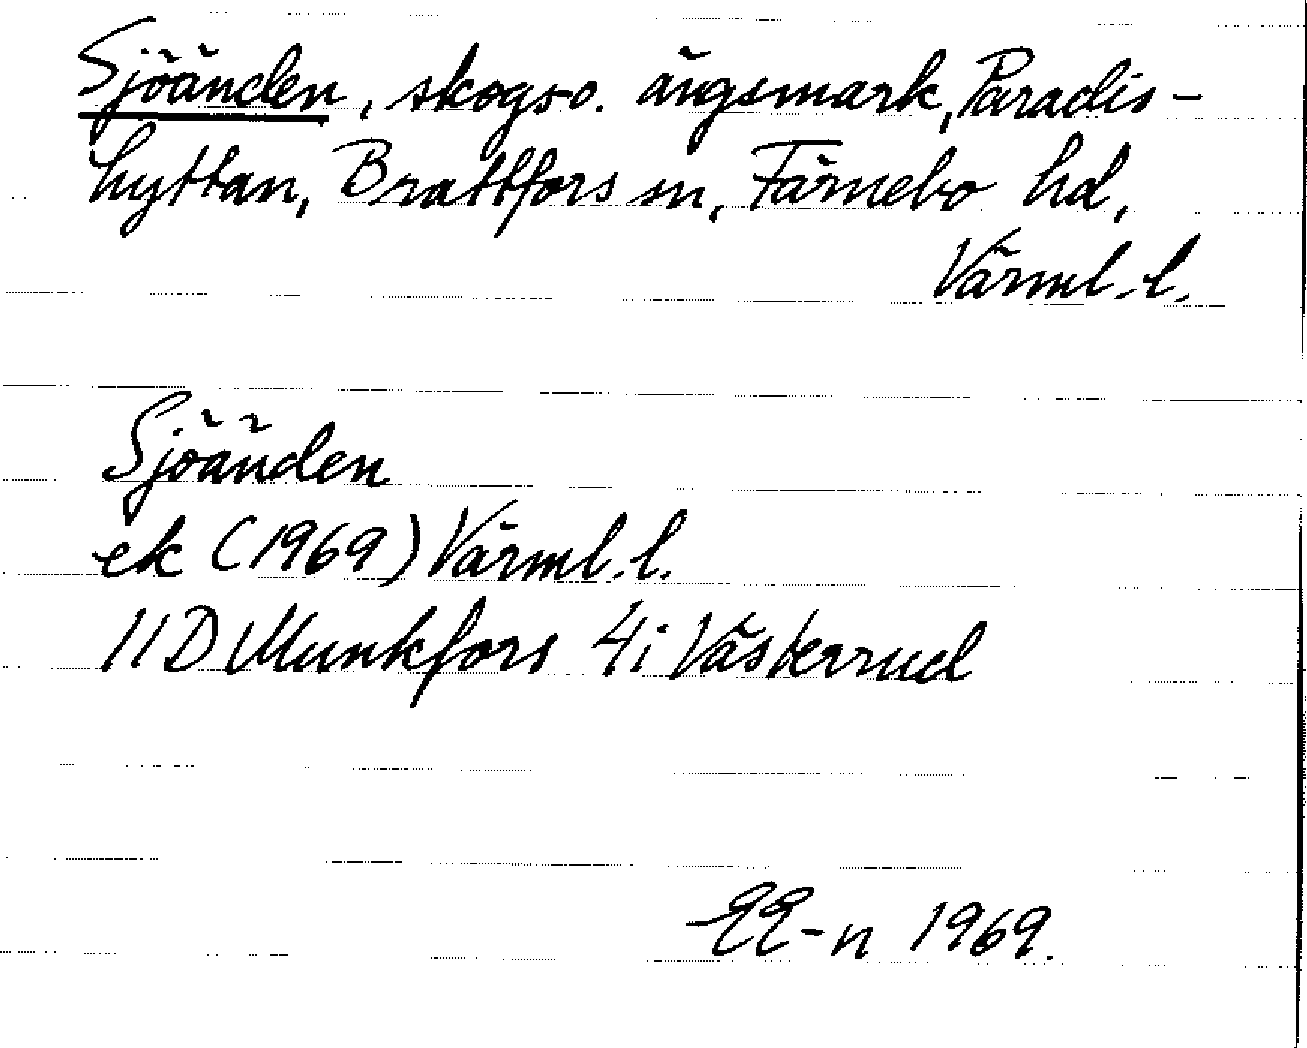 Sjöänden, skogs o. ängsmark, Paradis-
hyttan, Brattfors sn, Färnebo hd,
Värml. l.
Sjöänden
ek (1969) Värml. l.
11D Munkfors 4i Västerrud
EE-n 1969.